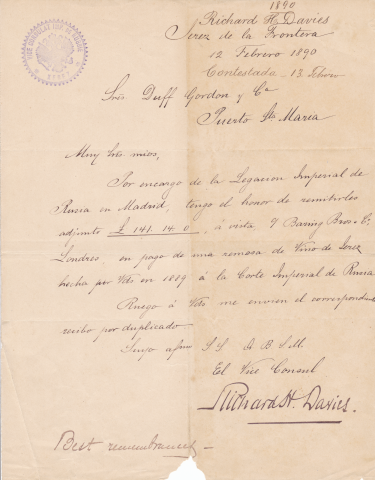 1890
Richard H. Davies
Jerez de la Frontera
12 Febrero 1890
Contestada - 13 Febro
Sres Duff Gordon y Ca
Puerto Sta Maria
Muy Sres mios,
Por encargo de la Legacion Imperial de
Rusia en Madrid, tengo el honor de remitirles
adjunto £ 141.14.0. á vista, Baring Bros & Co
Londres, en pago de una remesa de Vino de Jerez
hecha por Vds en 1889 á la Corte Imperial de Rusia
Ruego á Vds me envien el correspondiente
recibo por duplicado
Suyo afmo S S Q B S M.
El Vice Consul
Richard H. Davies.
Best remembrances